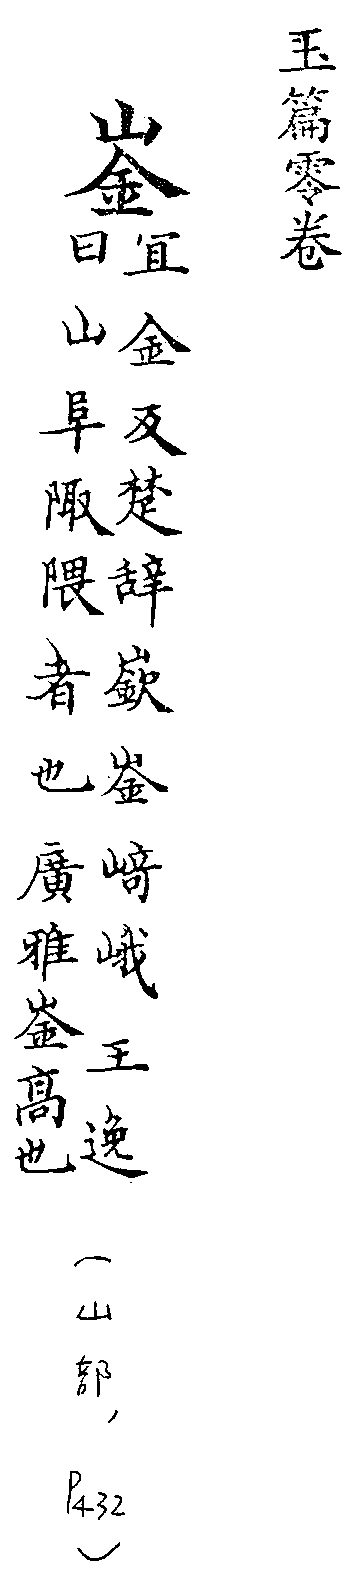 玉篇零卷
崟
宜金反楚辞嶔崟﨑峨王逸
曰山阜陬隈者也廣雅崟髙也
(山部, P432)